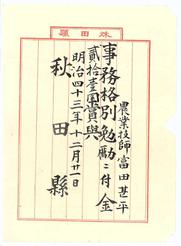 秋田縣
農業技師富田甚平
事務格別勉勵ニ付金
貳拾壹圓賞與
明治四十三年十二月廿一日
秋田縣